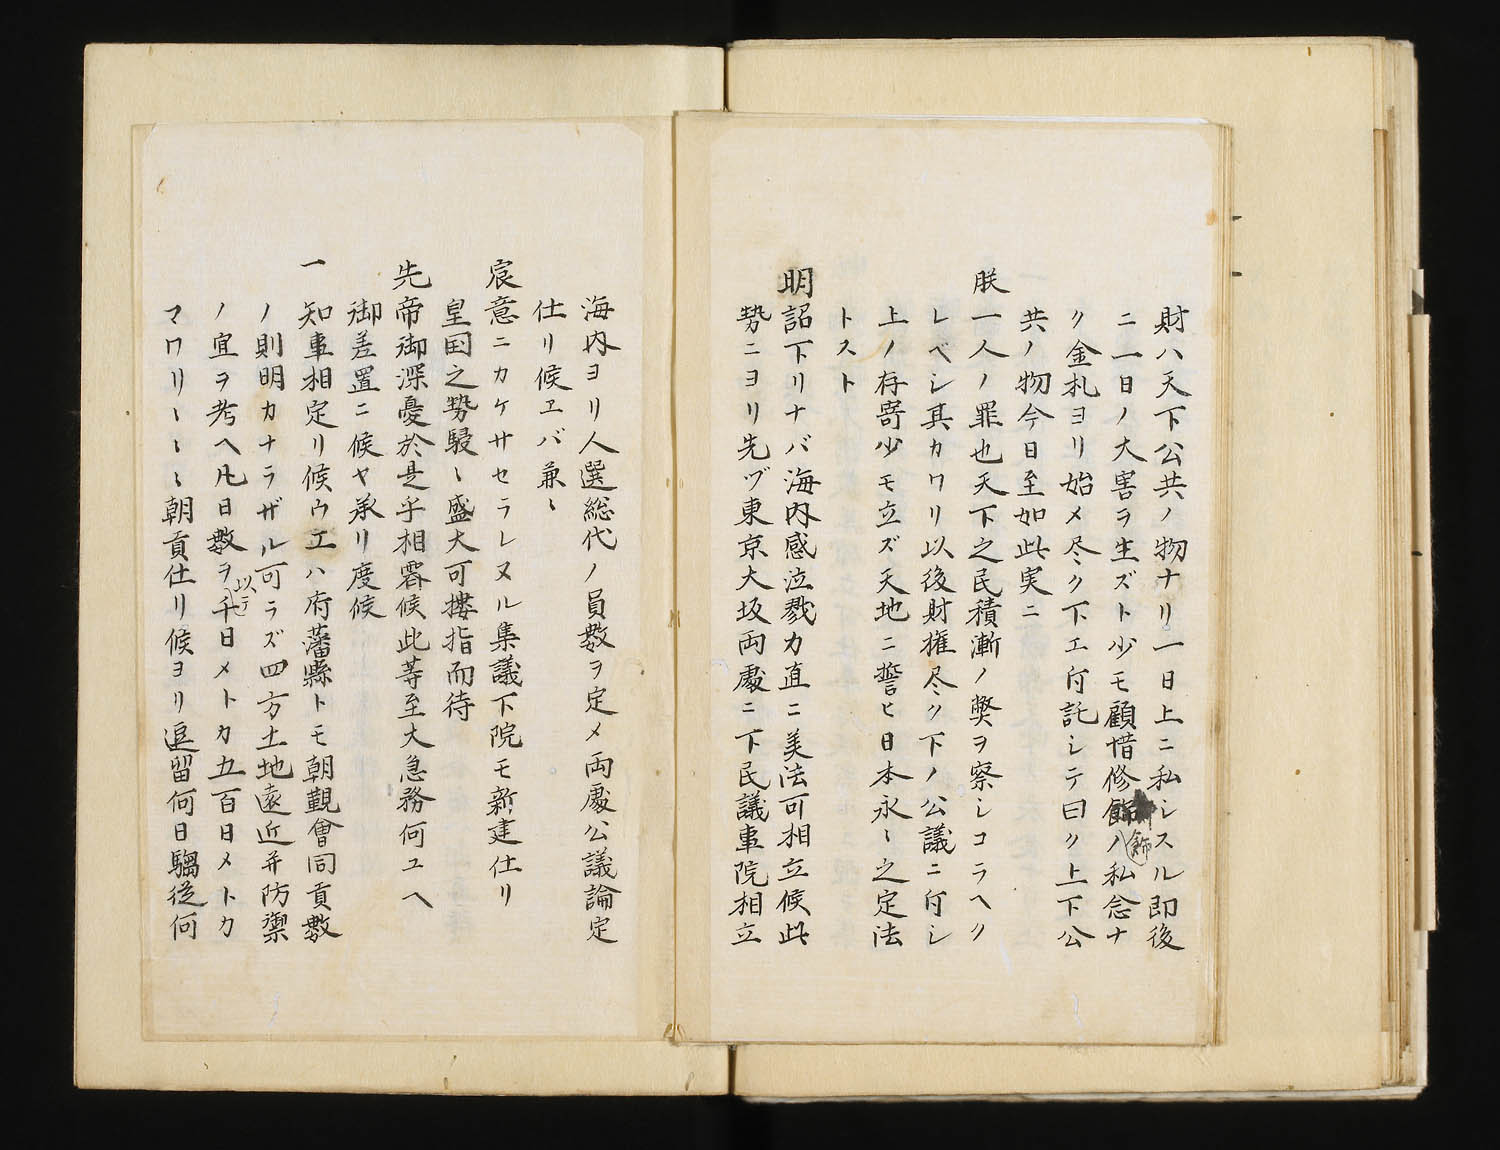 財ハ天下公共ノ物ナリ一日上ニ私シスル即後
ニ一日ノ大害ヲ生ズト少モ顧惜修飾ノ私念ナ
飾
ク金札ヨリ始メ尽ク下エ付託シテ曰ク上下公
共ノ物今日至如此実ニ
朕一人ノ罪也天下之民積漸ノ弊ヲ察シコラヘク
レベシ其カワリ以後財権尽ク下ノ公議ニ付シ
上ノ存寄少モ立ズ天地ニ誓ヒ日本永〻之定法
トスト
明詔下リナバ海内感泣戮力直ニ美法可相立候此
勢ニヨリ先ヅ東京大坂両處ニ下民議事院相立
海内ヨリ人選総代ノ員数ヲ定メ両處公議論定
仕リ候エバ兼〻
宸意ニカケサセラレヌル集議下院モ新建仕リ
皇国之勢駸〻盛大可摟指而待
先帝御深憂於是乎相霽候此等至大急務何ユヘ
御差置ニ候ヤ承リ度候
一知事相定リ候ウエハ府藩縣トモ朝覲會同貢數
ノ則明カナラザル可ラズ四方土地遠近并防禦
ノ宜ヲ考ヘ凡日數ヲ千日メトカ五百日メトカ
以テ
マワリ〱〻朝貢仕リ候ヨリ逗留何日騶従何